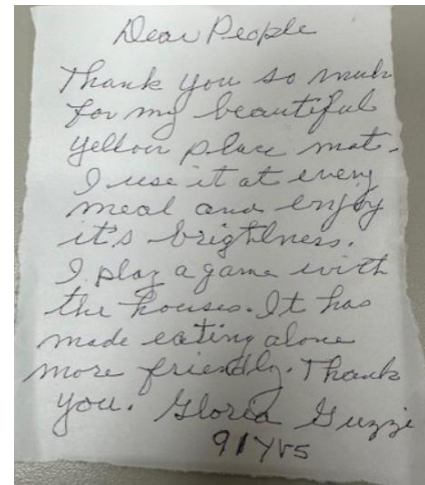 Dear People
Thank you so much
for my beautiful
yellow place mat.
I use it at every
meal and enjoy
it's brightness.
I play a game with
the houses. It has
made eating alone
more friendly. Thank
you. Gloria Guzzi
91 yrs